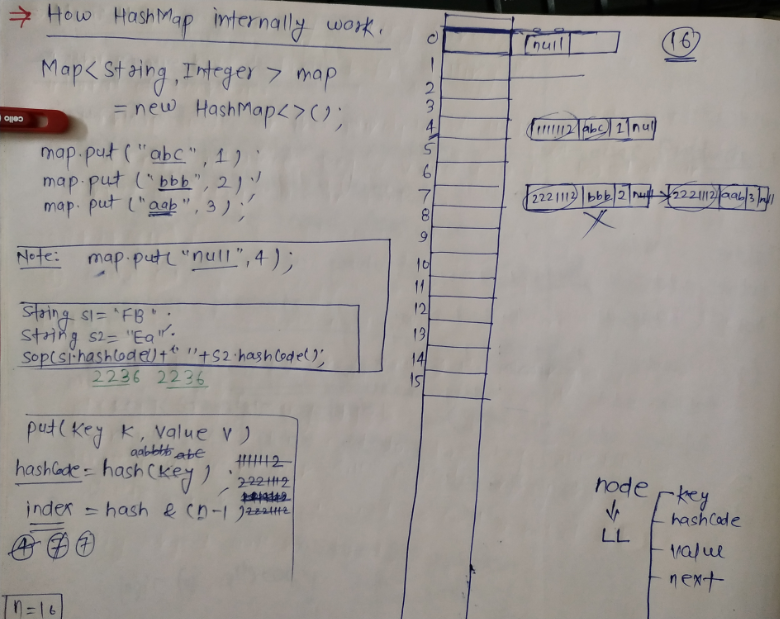 ⇒ How HashMap internally work.
Map<String, Integer> map
= new HashMap<>();
cello
map.put("abc", 1);
map.put("bbb", 2);
map.put("aab", 3);
Note: map.put("null", 4);
String s1= "FB".
String s2= "Ea".
sop(s1.hashCode()+" "+s2.hashCode();
2236 2236
put(Key K, Value V)
aabbbb abc
hashCode = hash(key);
1111112
2221112
index = hash & (n-1)
2221112
4 7 7
n=16
0
1
2
3
4
5
6
7
8
9
10
11
12
13
14
15
null
16
1111112 abc 1 null
2221112 bbb 2 null → 2221112 aab 3 null
node
↓
LL
key
hashCode
value
next